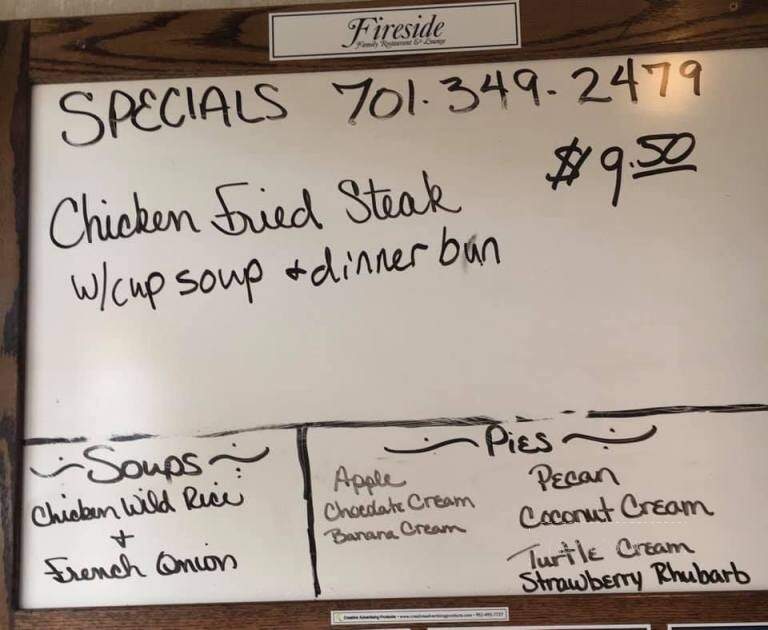 Fireside
Family Restaurant & Lounge
SPECIALS 701.349.2479
$9.50
Chicken Fried Steak
w/cup soup + dinner bun
Soups
Chicken Wild Rice
+
French Onion
Pies
Apple
Chocolate Cream
Banana Cream
Pecan
Coconut Cream
Turtle Cream
Strawberry Rhubarb
Creative Advertising Products